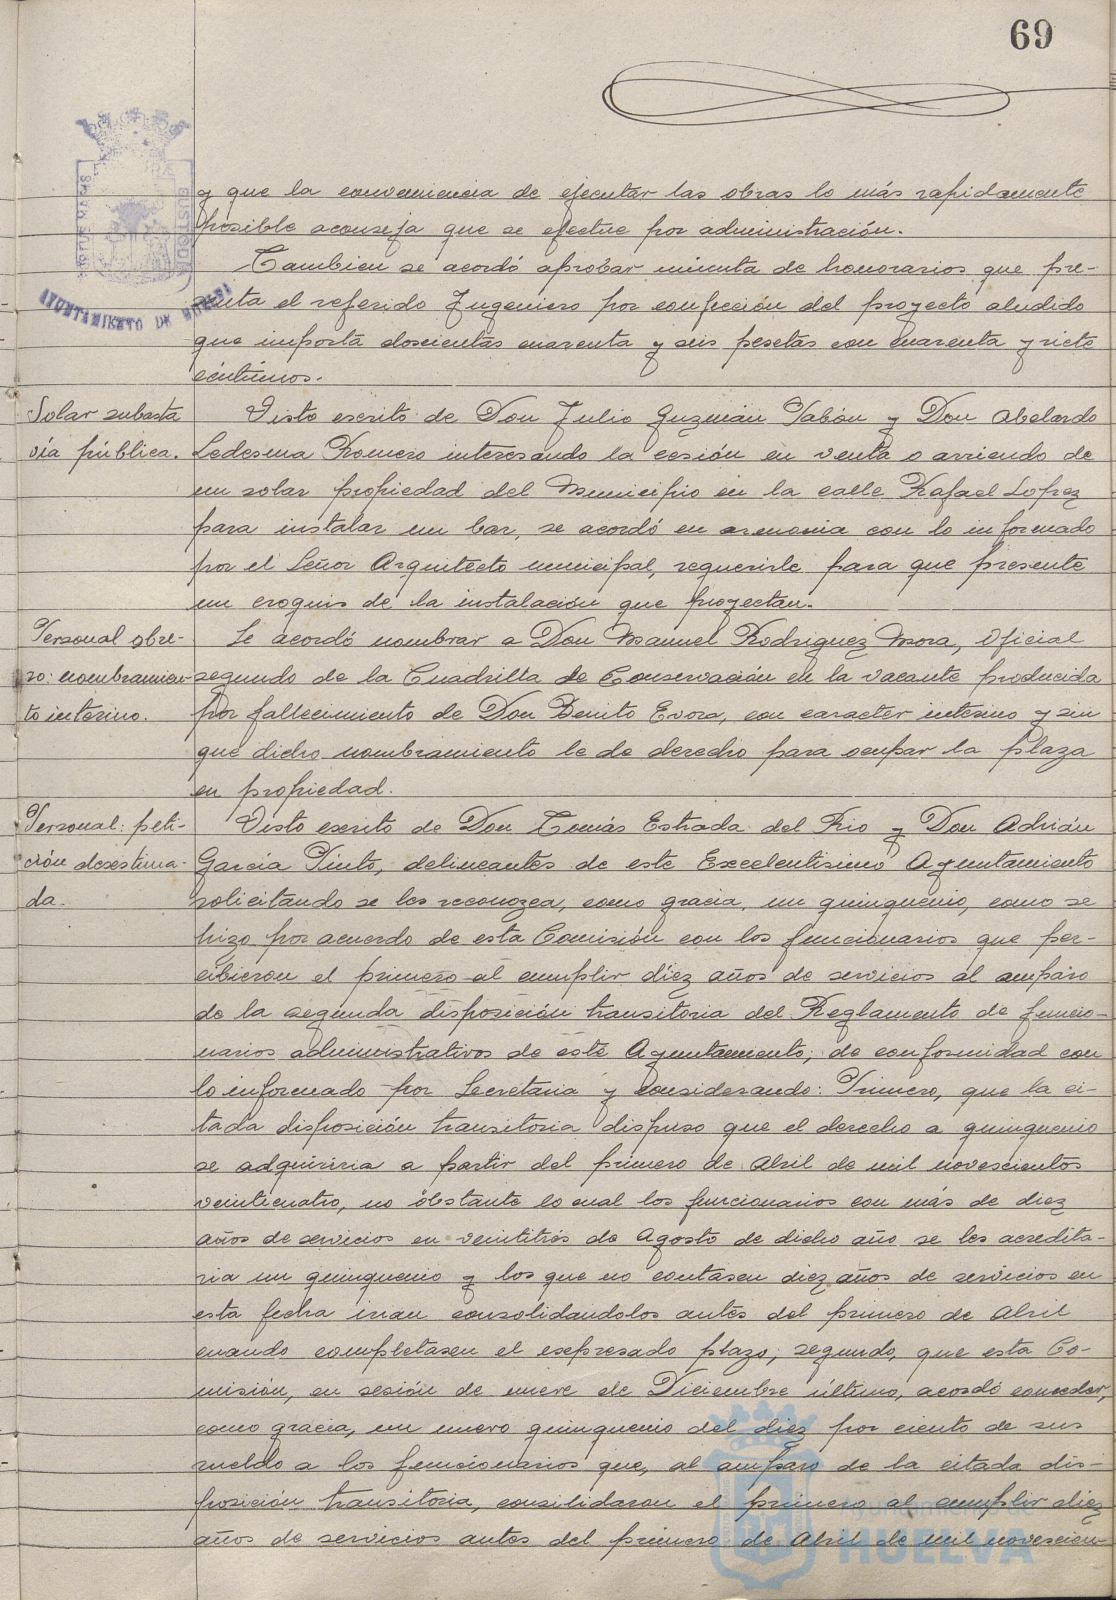 69
y que la conveniencia de ejecutar las obras lo más rapidamente
posible aconseja que se efectue por administración.
Tambien se acordó aprobar minuta de honorarios que pre-
senta el referido Ingeniero por confección del proyecto aludido
que importa doscientas cuarenta y seis pesetas con cuarenta y siete
céntimos.
AYUNTAMIENTO DE HUELVA
Solar subasta
vía pública.
Visto escrito de Don Julio Guzmán Pabón y Don Abelardo
Ledesma Romero interesando la cesión en venta o arriendo de
un solar propiedad del Municipio en la calle Rafael Lopez
para instalar un bar, se acordó en armonia con lo informado
por el Señor Arquitecto municipal, requerirle para que presente
un croquis de la instalación que proyectan.
Personal obre-
ro: nombramien-
to interino.
Se acordó nombrar a Don Manuel Rodriguez Mora, Oficial
segundo de la Cuadrilla de Conservación en la vacante producida
por fallecimiento de Don Benito Evora, con caracter interino y sin
que dicho nombramiento le de derecho para ocupar la plaza
en propiedad.
Personal: peti-
ción desestima-
da.
Visto escrito de Don Tomás Estrada del Rio y Don Adrián
García Pinto, delineantes de este Excelentisimo Ayuntamiento
solicitando se les reconozca, como gracia, un quinquenio, como se
hizo por acuerdo de esta Comisión con los funcionarios que per-
cibieron el primero al cumplir diez años de servicios al amparo
de la segunda disposición transitoria del Reglamento de funcio-
narios administrativos de este Ayuntamiento; de conformidad con
lo informado por Secretaria y considerando: Primero, que la ci-
tada disposición transitoria dispuso que el derecho a quinquenio
se adquiriria a partir del primero de Abril de mil novescientos
veinticuatro, no óbstante lo cual los funcionarios con más de diez
años de servicios en veintitrés de Agosto de dicho año se les acredita-
ria un quinquenio y los que no contasen diez años de servicios en
esta fecha irian consolidandolos antes del primero de Abril
cuando completasen el expresado plazo; segundo, que esta Co-
misión, en sesión de nueve de Diciembre último, acordó conceder,
como gracia, un nuevo quinquenio del diez por ciento de sus
sueldo a los funcionarios que, al amparo de la citada dis-
posición transitoria, consilidaron el primero al cumplir diez
años de servicios antes del primero de Abril de mil novescien-
Ayuntamiento de
HUELVA